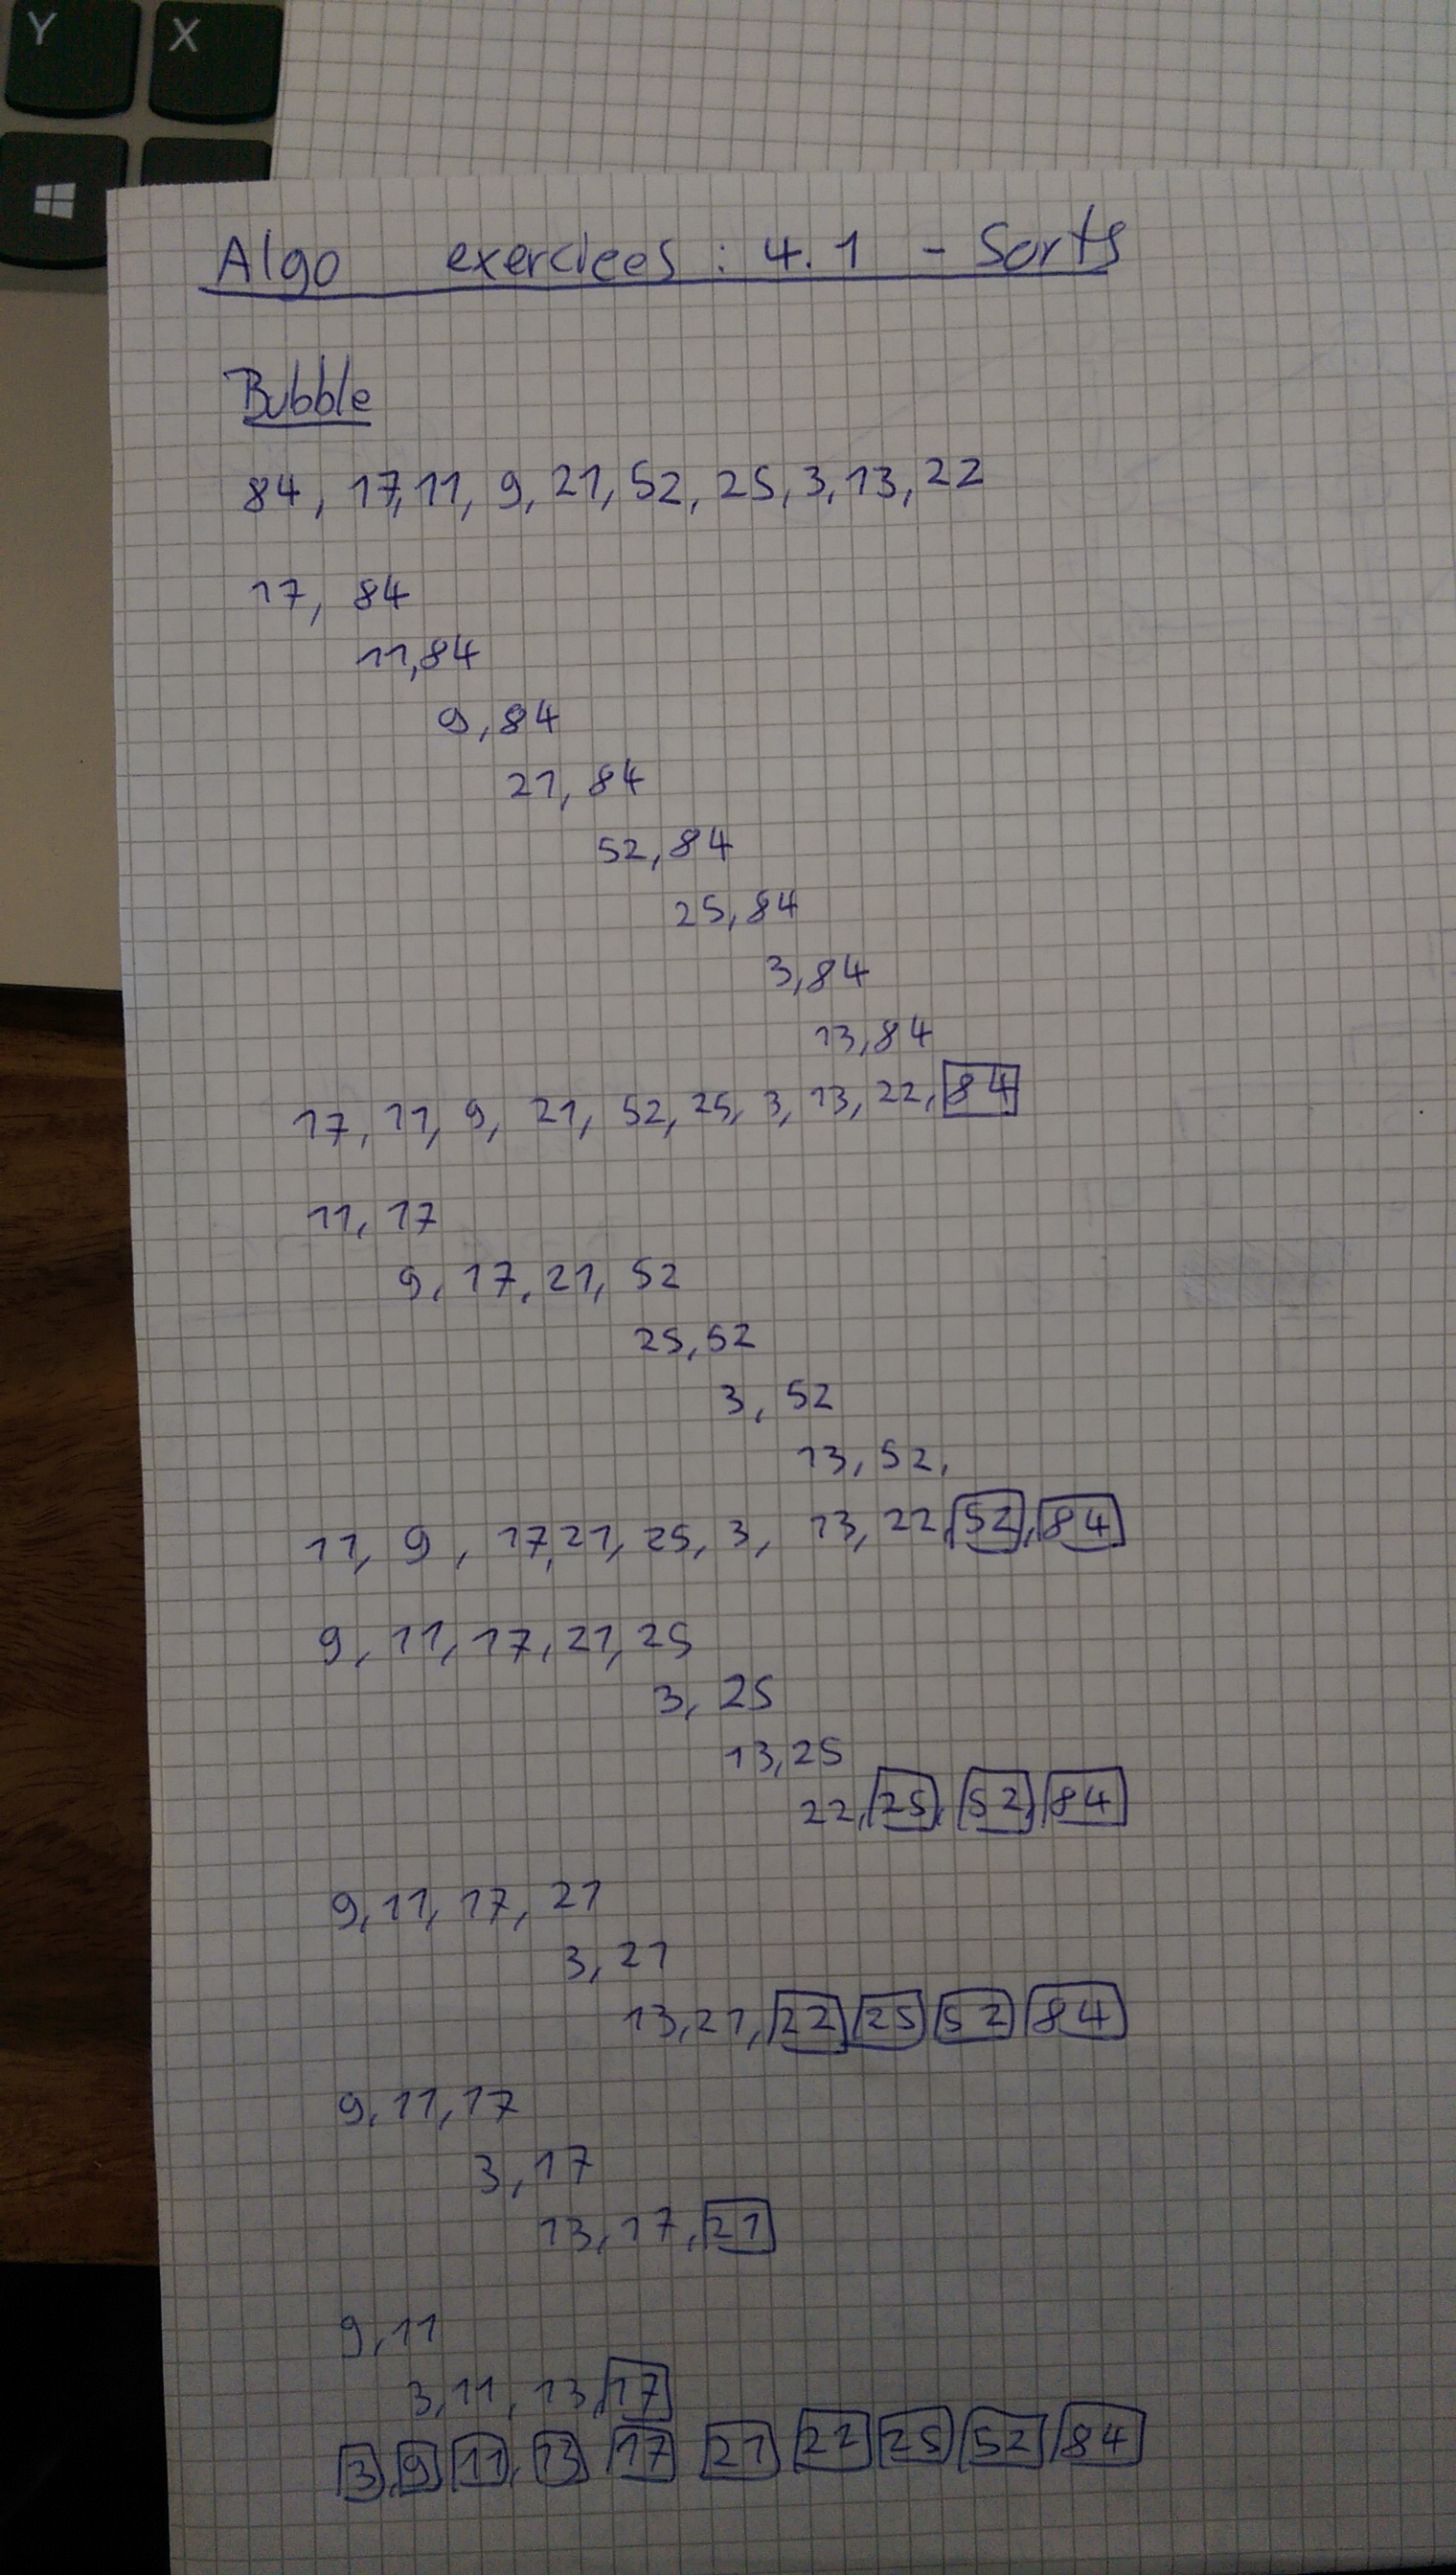 Y X
Algo exercices : 4.1 - Sorts
Bubble
84, 17, 11, 9, 21, 52, 25, 3, 13, 22
17, 84
11, 84
9, 84
21, 84
52, 84
25, 84
3, 84
13, 84
17, 11, 9, 21, 52, 25, 3, 13, 22, 84
11, 17
9, 17, 21, 52
25, 52
3, 52
13, 52,
11, 9, 17, 21, 25, 3, 13, 22, 52, 84
9, 11, 17, 21, 25
3, 25
13, 25
22, 25, 52, 84
9, 11, 17, 21
3, 21
13, 21, 22 25 52 84
9, 11, 17
3, 17
13, 17, 21
9, 11
3, 11, 13, 17
3, 9 11, 13 17 21 22 25 52 84